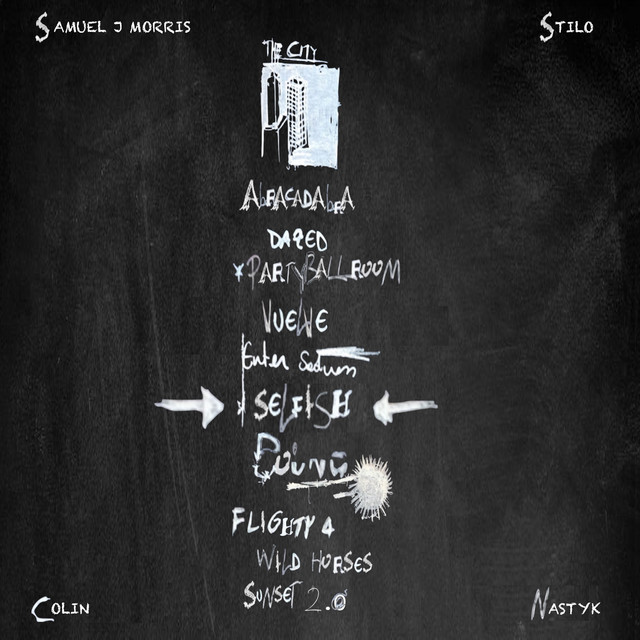 SAMUEL J MORRIS
STILO
THE CITY
ABRACADABRA
DAZED
*PARTYBALLROOM
VUELVE
SELFISH
FLIGHTY 4
WILD HORSES
SUNSET 2.0
COLIN
NASTYK